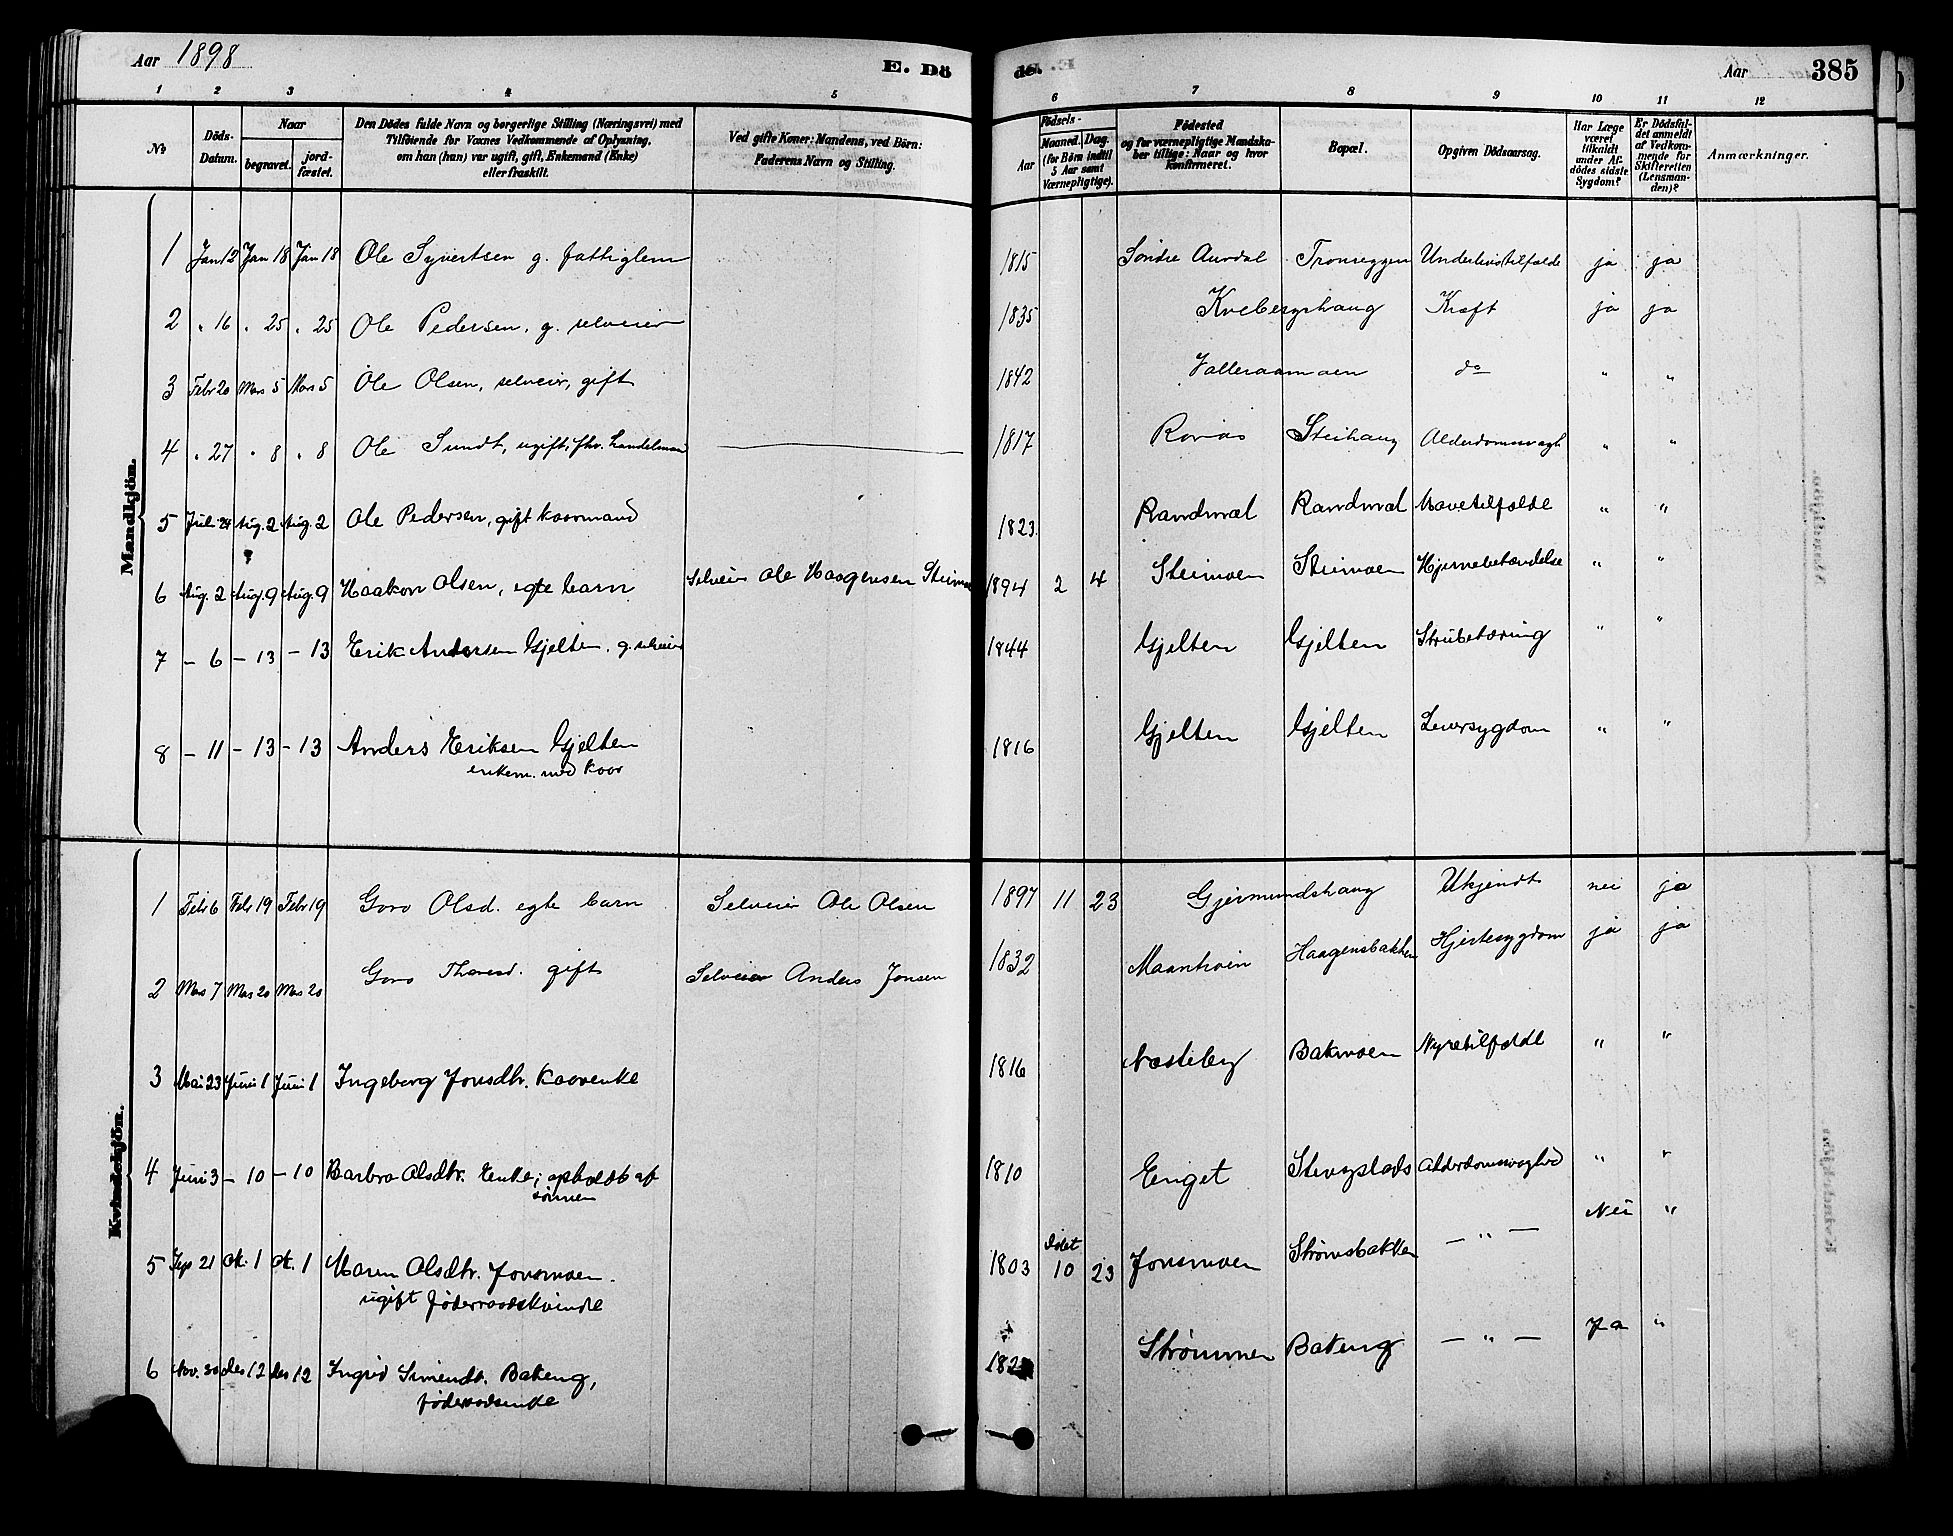 Aar 1898
E. Dö
de.
Aar 385
1 2 3 4 5 6 7 8 9 10 11 12
No
Döds-Datum.
Naar
begravet.
jord-fæstet.
Den Dödes fulde Navn og borgerlige Stilling (Næringsvei) med
Tilföiende for Voxnes Vedkommende af Oplysning,
om han (hun) var ugift, gift, Enkemand (Enke)
eller fraskilt.
Ved gifte Koner: Mandens, ved Börn:
Faderens Navn og Stilling.
Födsels-
Aar
Maaned. Dag.
(for Börn indtil
5 Aar samt
Værnepligtige).
Födested
og for værnepligtige Mandska-
ber tillige: Naar og hvor
konfirmeret.
Bopæl.
Opgiven Dödsaarsag.
Har Læge
været
tilkaldt
under Af-
dödes sidste
Sygdom?
Er Dödsfal-
det anmeldt
af Vedkom-
mende for
Skifteretten
(Lensman-
den)?
Anmærkninger.
Mandkjön.
1 Jan 12 Jan 18 Jan 18 Ole Syvertsen g. fattiglem 1815 Søndre Aurdal Tronseggen Underlivstilfælde ja ja
2 " 16 " 25 " 25 Ole Pedersen, g. selveier 1835 Kvebergshaug Kræft ja ja
3 Febr 20 Mars 5 Mars 5 Ole Olsen, selveier, gift 1842 do " "
4 " 27 " 8 " 8 Ole Sundt, ugift, fhv. Landelsmand 1817 Steihaug " "
5 Juli 24 Aug. 2 Aug. 2 Ole Pedersen, gift kaarmand 1823 Randmæl Randmæl Mavetilfælde " "
6 Aug. 2 Aug. 9 Aug. 9 Haakon Olsen, egte barn Selveier Ole Haagensen Steimoen 1894 2 4 Steimoen Steimoen Hjernebetændelse " "
7 – 6 – 13 – 13 Erik Andersen Gjelten. g. selveier 1844 Gjelten Gjelten Strubetæring " "
8 – 11 – 13 – 13 Anders Eriksen Gjelten
enkem. med kaar 1816 Gjelten Gjelten Leversygdom " "
Kvindekjön.
1 Febr 6 Febr 19 Febr 19 Goro Olsd. egte barn Selveier Ole Olsen 1897 11 23 Gjermundshaug Ukjendt nei ja
2 Mars 7 Mars 20 Mars 20 Goro Thoresd. gift Selveier Anders Jonsen 1832 Haagensbakken Hjertesygdom ja ja
3 Mai 23 Juni 1 Juni 1 Ingeborg Jonsdtr. kaarenke 1816 Næsteby Bakmoen Nyretilfælde " "
4 Juni 3 – 10 – 10 Barbro Olsdtr. Enke; opholdt af
sönnen 1810 Enget Alderdomssvaghed " "
5 Sep 21 Okt. 1 Okt. 1 Maren Olsdtr. Jonsmoen.
ugift föderaadskvinde 1803 10 23 Jonsmoen Strömsbakken – " – Nei "
6 Nov. 30 des 12 des 12 Ingrid Simensdt. Bakeng,
föderaadsenke Strömmen Bakeng – " – Ja "